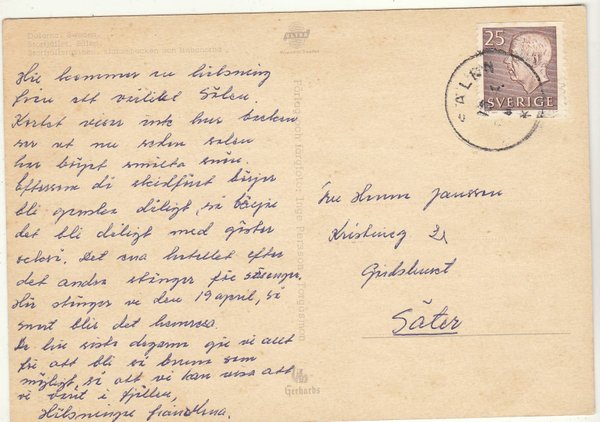 Dalarna, Sweden
Storhållet, Sälen
ULTRA
25
SVERIGE
SÄLEN
Här kommer en hälsning
från ett vårlikt Sälen.
Kortet visar inte hur backen
ser ut nu sedan solen
har börjat smälta snön.
Eftersom då skidföret börjar
bli ganska dåligt, så börjar
det bli dåligt med gäster
också. Det ena hotellet efter
det andra stänger för säsongen.
Här stänger vi den 19 april, så
snart blir det hemresa.
De här sista dagarna gör vi allt
för att bli så bruna som
möjligt, så att vi kan visa att
vi varit i fjällen.
Hälsningar från
Fru Hanna Jansson
Kristineg
Säter
Foto och färgfoto: Inge Persson, Fergusmen
Gerhards